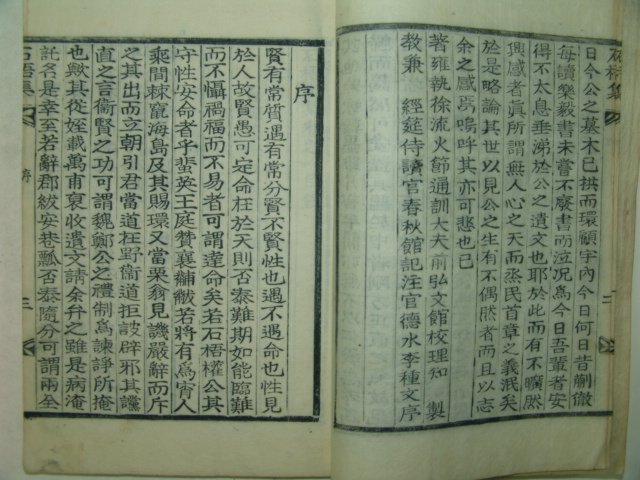 石梧集
日今公之墓木已拱而環顧宇內今日何日昔蒯徹
每讀樂毅書未嘗不廢書而泣况爲今日吾輩者安
得不太息垂涕於公之遺文也耶於此而有不曠然
興感者眞所謂無人心之天而烝民首章之義泯矣
於是略論其世以見公之生有不偶然者而且以志
余之感焉嗚呼其亦可悲也已
著雍執徐流火節通訓大夫前弘文館校理知 製
敎兼 經筵侍讀官春秋館記注官德水李種文序
二
序
賢有常質遇有常分賢不賢性也遇不遇命也性見
於人故賢愚可定命在於天則否泰難期如能臨難
而不懾禍福而不易者可謂達命矣若石梧權公其
守性安命者乎蜚英王庭贊襄黼黻若將有爲宵人
乘間棘竄海島及其賜環又當栗翁見譏嚴辭而斥
之其出而立朝引君當道在野衛道拒詖辟邪其讜
直之言衛賢之功可謂魏鄭公之禮制爲諫諍所掩
也歟其從姪載萬甫裒收遺文請余弁之雖是病淹
託名是幸至若辭郡紱安巷瓢否泰隨分可謂兩全
石梧集
序
三